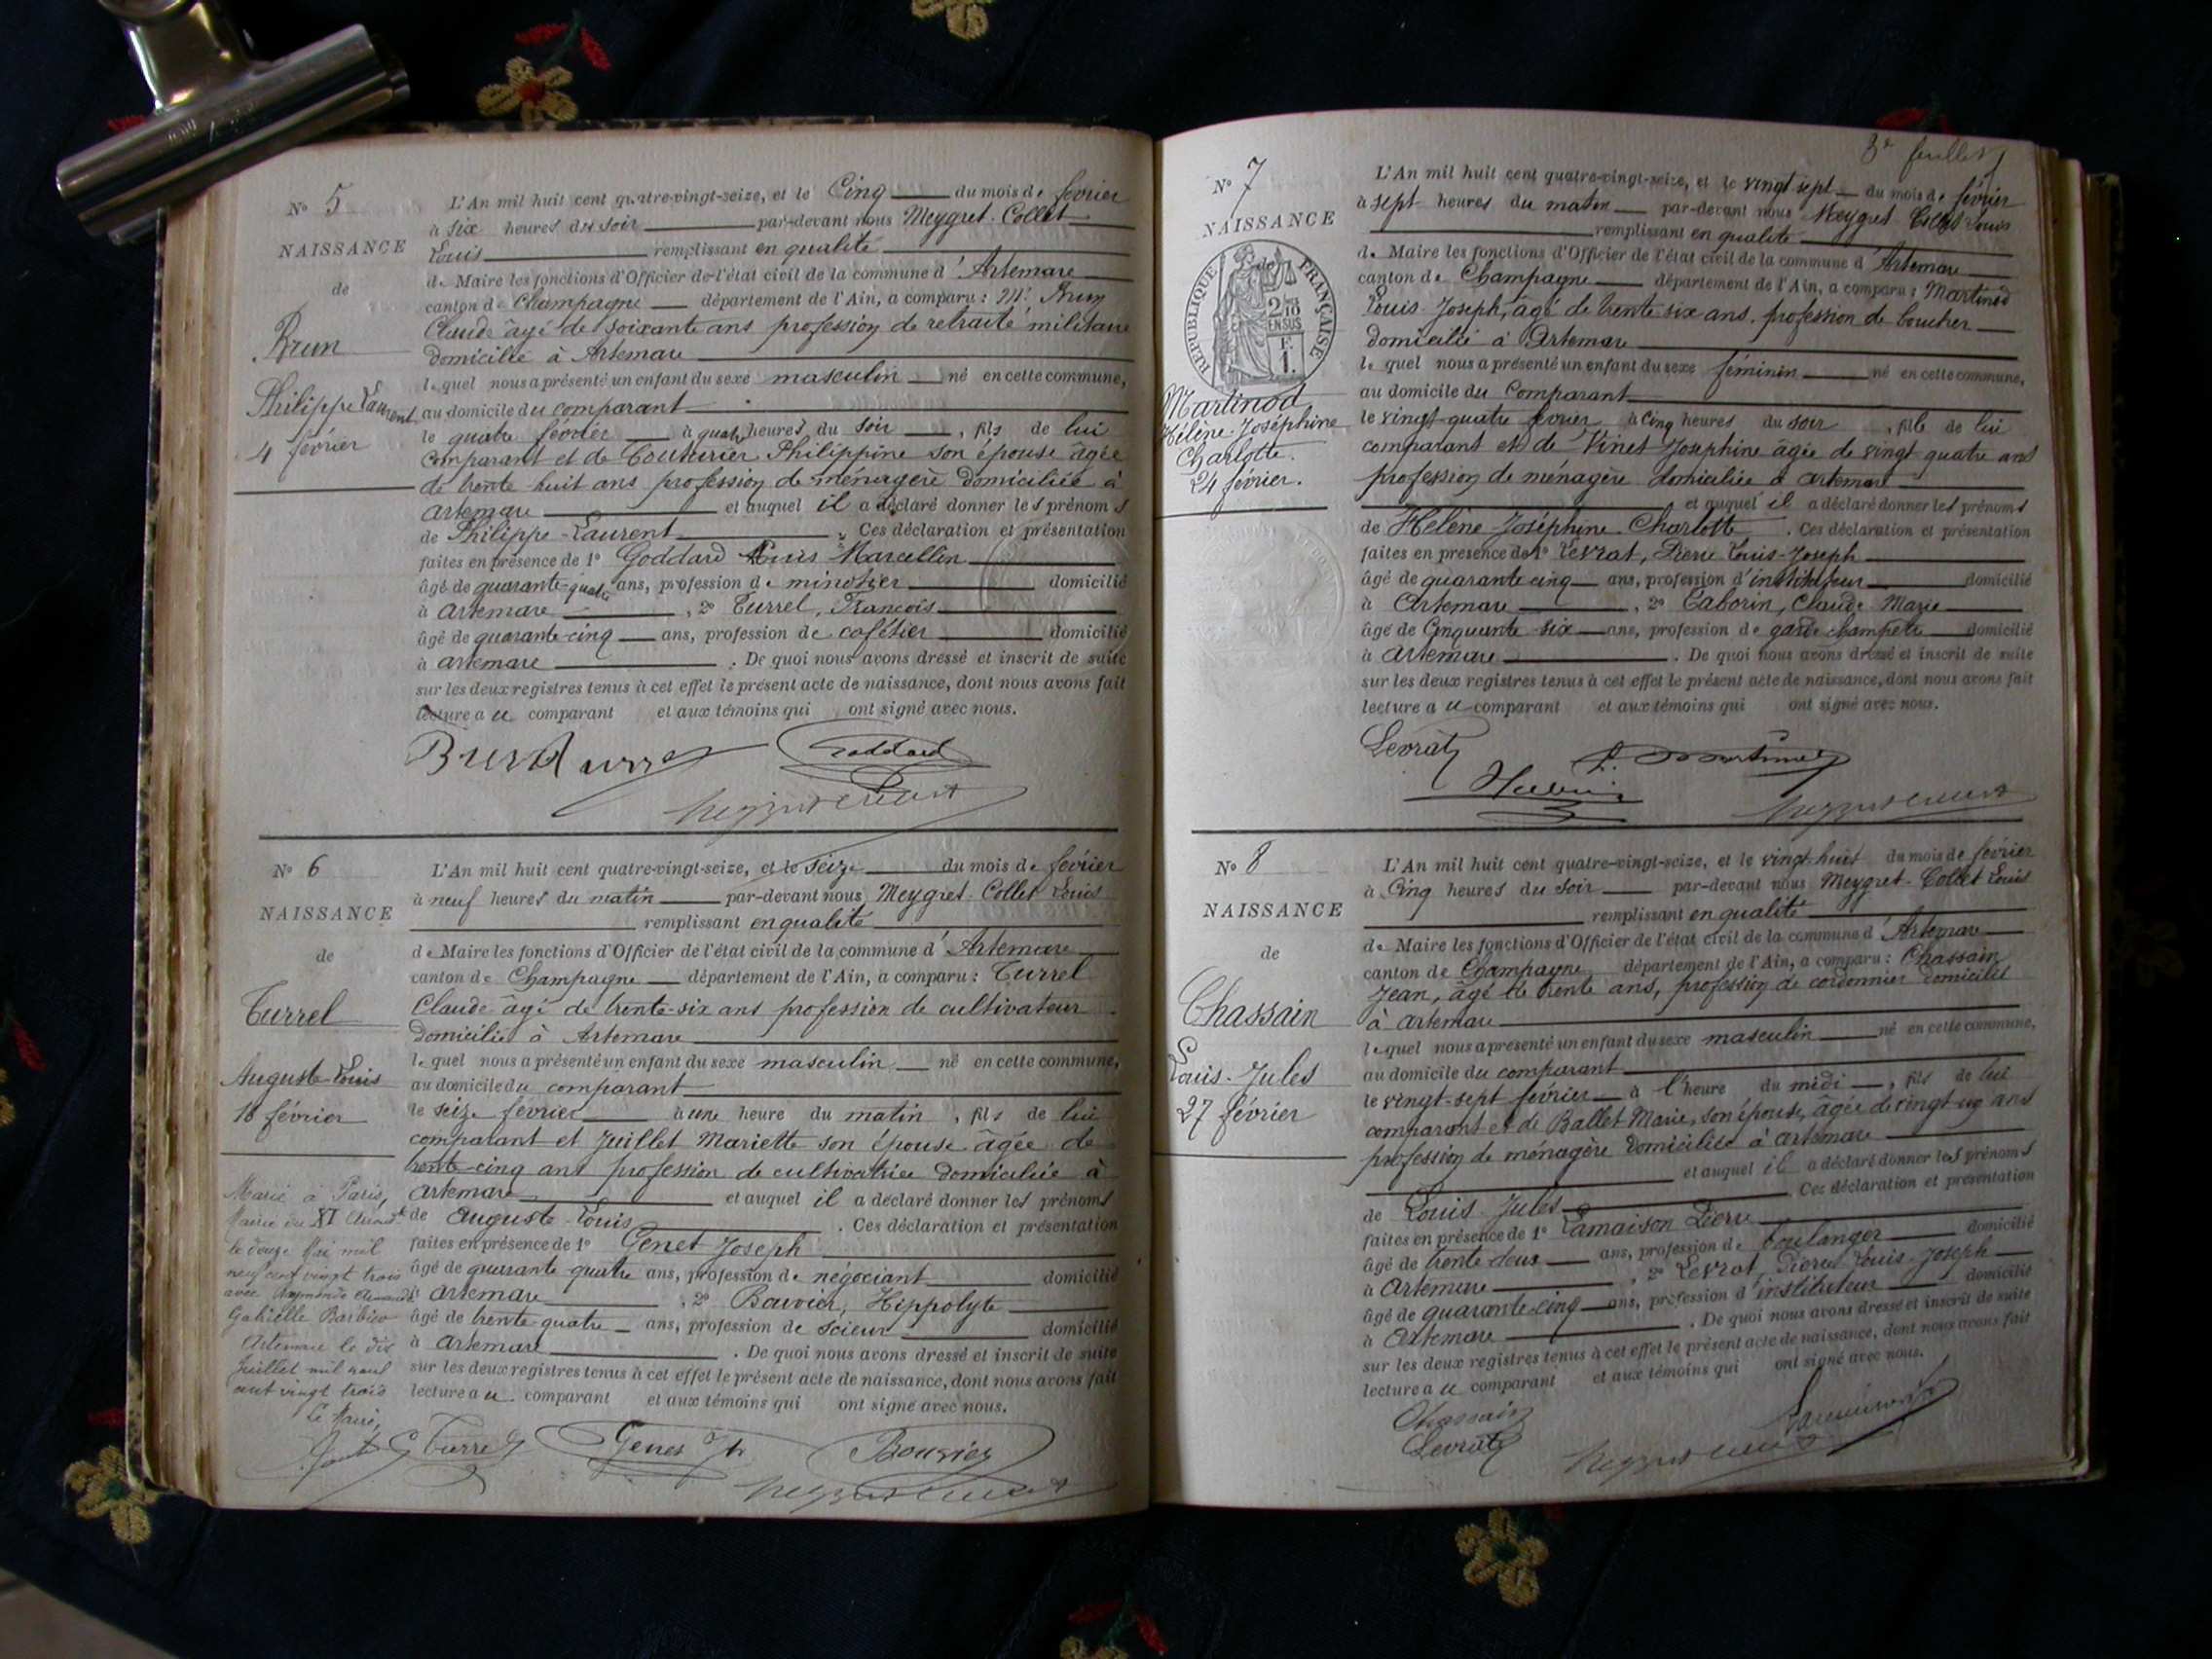 N° 5
NAISSANCE
de
Brun
Philippe Laurent
4 février
L'An mil huit cent quatre-vingt-seize, et le Cinq du mois de février
à six heures du soir par-devant nous Meygret-Collet
Louis remplissant en qualité
de Maire les fonctions d'Officier de l'état civil de la commune d'Artemare
canton de Champagne département de l'Ain, a comparu : Mr Brun
Claude âgé de soixante ans profession de retraité militaire
domicilié à Artemare
lequel nous a présenté un enfant du sexe masculin né en cette commune,
au domicile du comparant
le quatre février à quatre heures du soir, fils de lui
comparant et de Couturier Philippine son épouse âgée
de trente huit ans profession de ménagère domiciliée à
Artemare et auquel il a déclaré donner les prénoms
de Philippe-Laurent. Ces déclaration et présentation
faites en présence de 1° Goddard Louis Marcellin
âgé de quarante-quatre ans, profession de minotier domicilié
à Artemare, 2° Turrel, François
âgé de quarante-cinq ans, profession de cafétier domicilié
à Artemare. De quoi nous avons dressé et inscrit de suite
sur les deux registres tenus à cet effet le présent acte de naissance, dont nous avons fait
lecture au comparant et aux témoins qui ont signé avec nous.
Brun Turrel Goddard
Meygret Collet
N° 6
NAISSANCE
de
Turrel
Auguste-Louis
16 février
Marié à Paris,
Mairie du XI Arrondt
le douze Mai mil
neuf cent vingt trois
avec
Gabrielle Barbier
Artemare le dix
Juillet mil neuf
cent vingt trois
Le Maire,
L'An mil huit cent quatre-vingt-seize, et le seize du mois de février
à neuf heures du matin par-devant nous Meygret-Collet Louis
remplissant en qualité
de Maire les fonctions d'Officier de l'état civil de la commune d'Artemare
canton de Champagne département de l'Ain, a comparu : Turrel
Claude âgé de trente-six ans profession de cultivateur
domicilié à Artemare
lequel nous a présenté un enfant du sexe masculin né en cette commune,
au domicile du comparant
le seize février à une heure du matin, fils de lui
comparant et Juillet Mariette son épouse âgée de
trente-cinq ans profession de cultivatrice domiciliée à
Artemare et auquel il a déclaré donner les prénoms
de Auguste-Louis. Ces déclaration et présentation
faites en présence de 1° Genet Joseph
âgé de quarante quatre ans, profession de négociant domicilié
à Artemare, 2° Bouvier, Hippolyte
âgé de trente-quatre ans, profession de scieur domicilié
à Artemare. De quoi nous avons dressé et inscrit de suite
sur les deux registres tenus à cet effet le présent acte de naissance, dont nous avons fait
lecture au comparant et aux témoins qui ont signé avec nous.
Turrel Genet Jh Bouvier
Meygret Collet
3e feuillet
N° 7
NAISSANCE
de
RÉPUBLIQUE FRANÇAISE
2/10
EN SUS
F.
1.
Martinod
Hélène-Joséphine
Charlotte.
24 février.
L'An mil huit cent quatre-vingt-seize, et le vingt-sept du mois de février
à sept heures du matin par-devant nous Meygret Collet Louis
remplissant en qualité
de Maire les fonctions d'Officier de l'état civil de la commune d'Artemare
canton de Champagne département de l'Ain, a comparu : Martinod
Louis-Joseph, âgé de trente-six ans. profession de boucher
domicilié à Artemare
lequel nous a présenté un enfant du sexe féminin né en cette commune,
au domicile du Comparant
le vingt-quatre février à cinq heures du soir, fille de lui
comparant et de Vinet Josephine âgée de vingt quatre ans
profession de ménagère domiciliée à artemare
et auquel il a déclaré donner les prénoms
de Hélène-Joséphine-Charlotte. Ces déclaration et présentation
faites en présence de 1° Levrat, Pierre Louis-Joseph
âgé de quarante cinq ans, profession d'instituteur domicilié
à Artemare, 2° Taborin, Claude Marie
âgé de Cinquante-six ans, profession de garde champêtre domicilié
à Artemare. De quoi nous avons dressé et inscrit de suite
sur les deux registres tenus à cet effet le présent acte de naissance, dont nous avons fait
lecture au comparant et aux témoins qui ont signé avec nous.
Levrat L. Martinod
Meygret Collet
N° 8
NAISSANCE
de
Chassain
Louis-Jules
27 février
L'An mil huit cent quatre-vingt-seize, et le vingt-huit du mois de février
à Cinq heures du soir par-devant nous Meygret-Collet Louis
remplissant en qualité
de Maire les fonctions d'Officier de l'état civil de la commune d'Artemare
canton de Champagne département de l'Ain, a comparu : Chassain
Jean, âgé de trente ans, profession de cordonnier domicilié
à artemare
lequel nous a présenté un enfant du sexe masculin né en cette commune,
au domicile du comparant
le vingt-sept février à l'heure du midi, fils de lui
comparant et de Ballet Marie, son épouse, âgée de vingt-un ans
profession de ménagère domiciliée à artemare
et auquel il a déclaré donner les prénoms
de Louis-Jules Ces déclaration et présentation
faites en présence de 1° Lamaison Pierre
âgé de trente-deux ans, profession de boulanger domicilié
à Artemare, 2° Levrat, Pierre Louis-Joseph
âgé de quarante-cinq ans, profession d'instituteur domicilié
à Artemare. De quoi nous avons dressé et inscrit de suite
sur les deux registres tenus à cet effet le présent acte de naissance, dont nous avons fait
lecture au comparant et aux témoins qui ont signé avec nous.
Chassain Lamaison
Levrat Meygret Collet